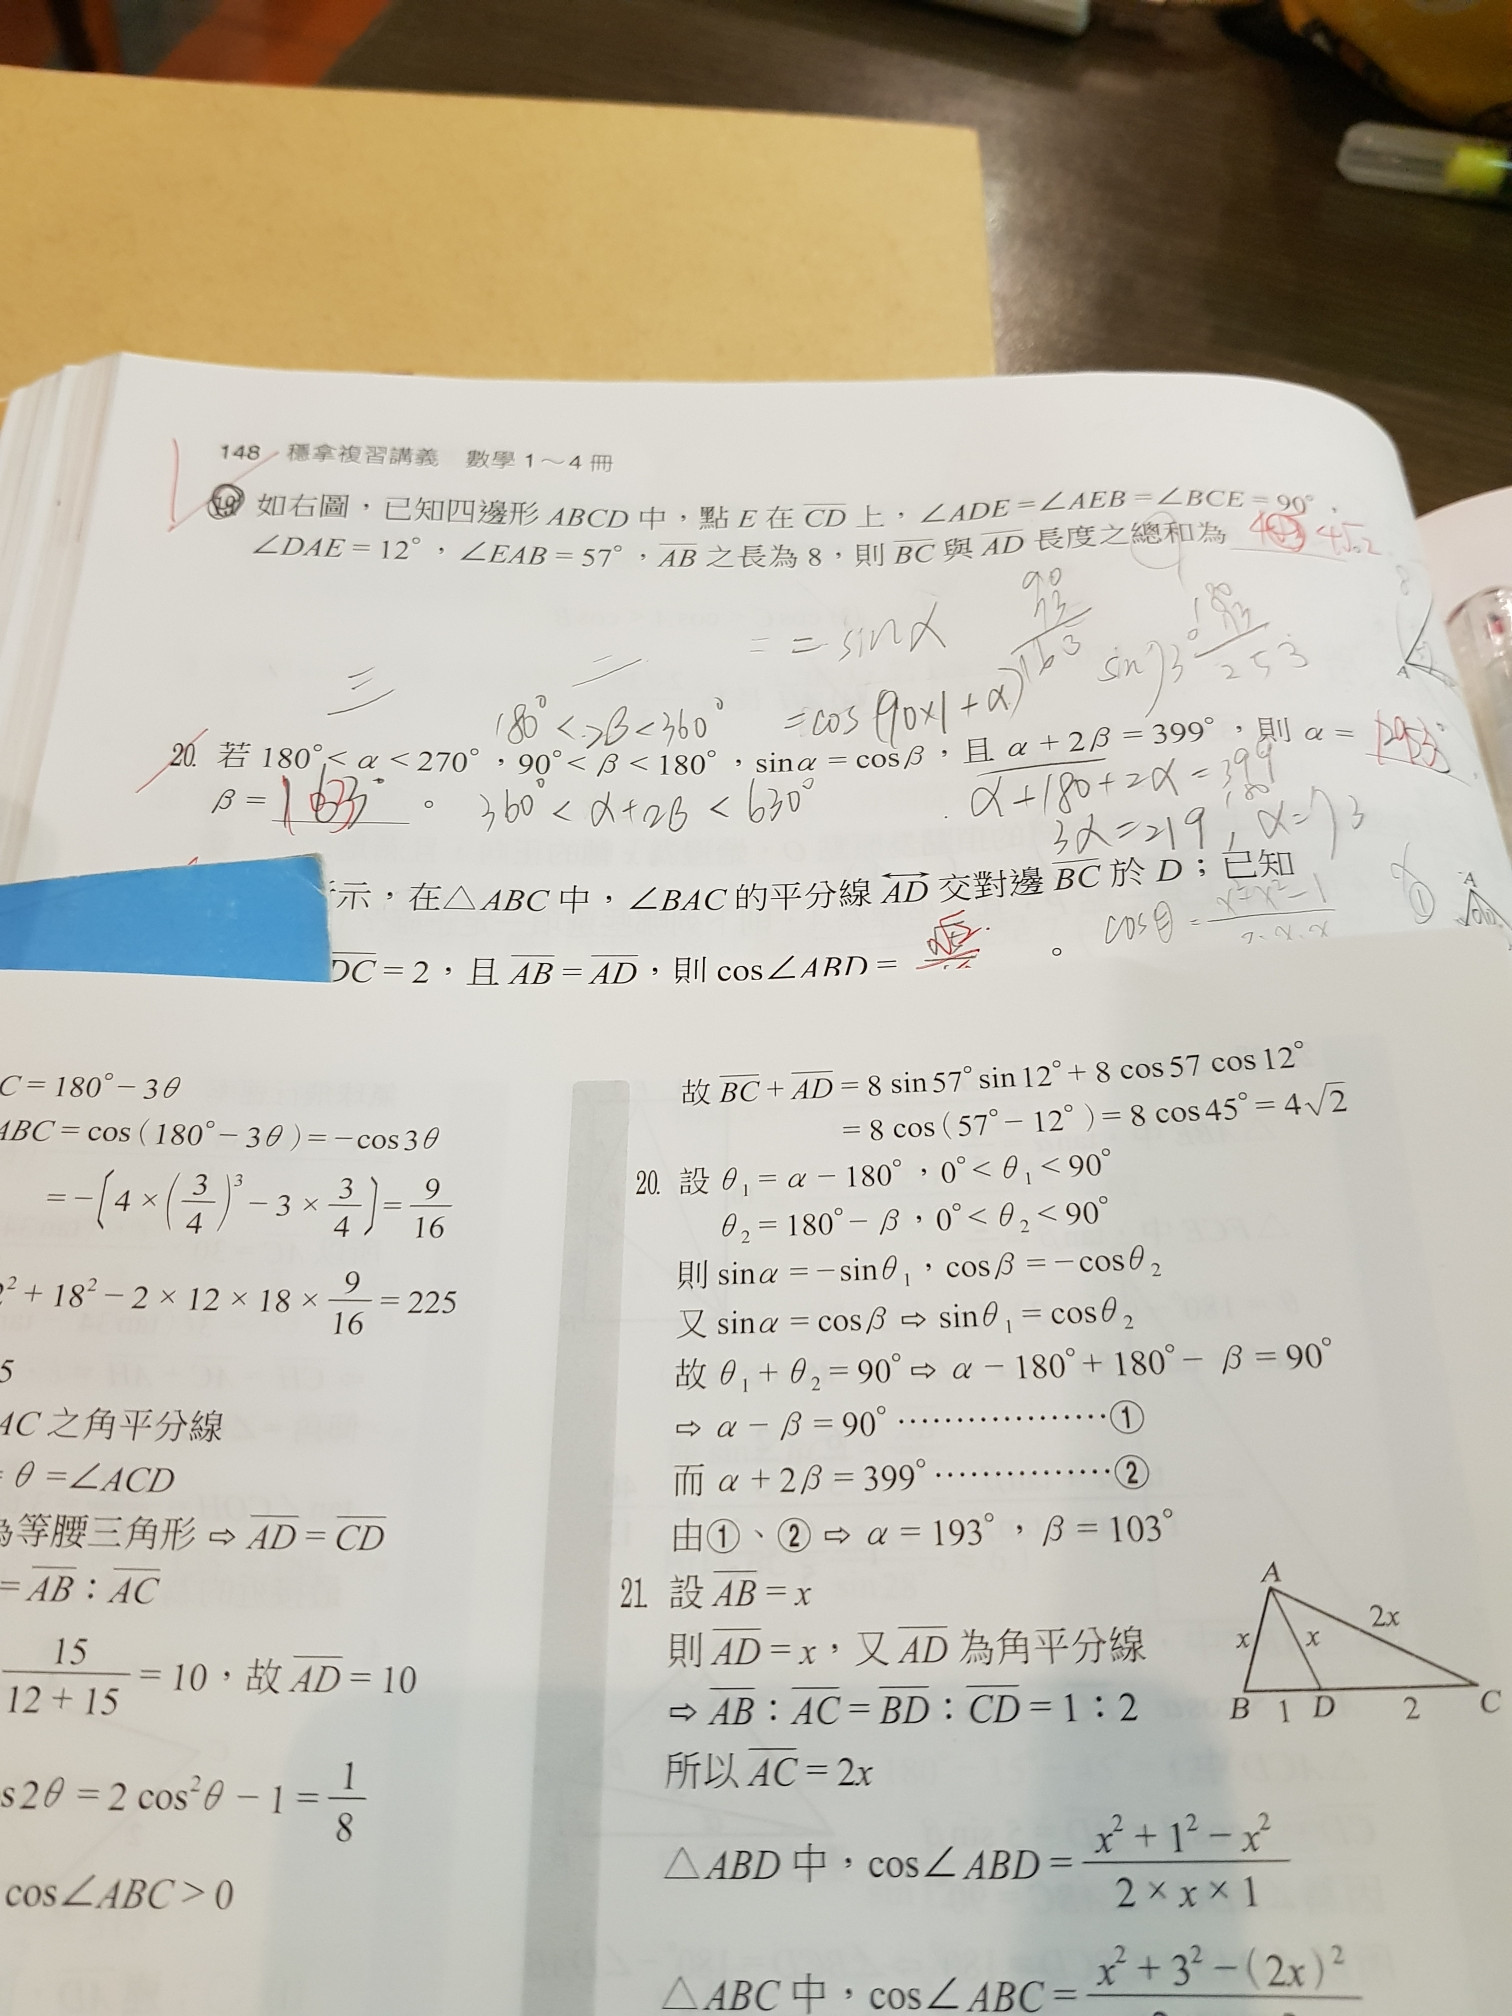 148 穩拿複習講義 數學 1～4 冊
19. 如右圖，已知四邊形 ABCD 中，點 E 在 CD 上，∠ADE＝∠AEB＝∠BCE＝90°，
∠DAE＝12°，∠EAB＝57°，AB 之長為 8，則 BC 與 AD 長度之總和為 4√2
= = sinα
90
73
163
sin73°
180
73
253
180°<2β<360°
=cos(90×1+α)
20. 若 180°<α<270°，90°<β<180°，sinα＝cosβ，且 α＋2β＝399°，則 α＝
β＝ 。
360°<α+2β<630°
α+180+2α=399
3α=219, α=73
示，在△ABC 中，∠BAC 的平分線 AD 交對邊 BC 於 D；已知
DC＝2，且 AB＝AD，則 cos∠ABD＝ 。
cosθ = x²+x²-1
2·x·x
A
C＝180°－3θ
ABC＝cos（180°－3θ）＝－cos3θ
＝－[4×(3/4)³－3×3/4]＝9/16
²＋18²－2×12×18×9/16＝225
5
AC 之角平分線
θ＝∠ACD
為等腰三角形⇨AD＝CD
＝AB：AC
15/(12＋15)＝10，故 AD＝10
s2θ＝2cos²θ－1＝1/8
cos∠ABC>0
故 BC＋AD＝8 sin57° sin12°＋8 cos57 cos12°
＝8 cos（57°－12°）＝8 cos45°＝4√2
20. 設 θ₁＝α－180°，0°<θ₁<90°
θ₂＝180°－β，0°<θ₂<90°
則 sinα＝－sinθ₁，cosβ＝－cosθ₂
又 sinα＝cosβ⇨sinθ₁＝cosθ₂
故 θ₁＋θ₂＝90°⇨α－180°＋180°－β＝90°
⇨α－β＝90°…………………①
而 α＋2β＝399°………………②
由①、②⇨α＝193°，β＝103°
21. 設 AB＝x
則 AD＝x，又 AD 為角平分線
⇨AB：AC＝BD：CD＝1：2
所以 AC＝2x
A
x x 2x
B 1 D 2 C
△ABD 中，cos∠ABD＝(x²＋1²－x²)/(2×x×1)
△ABC 中，cos∠ABC＝x²＋3²－(2x)²